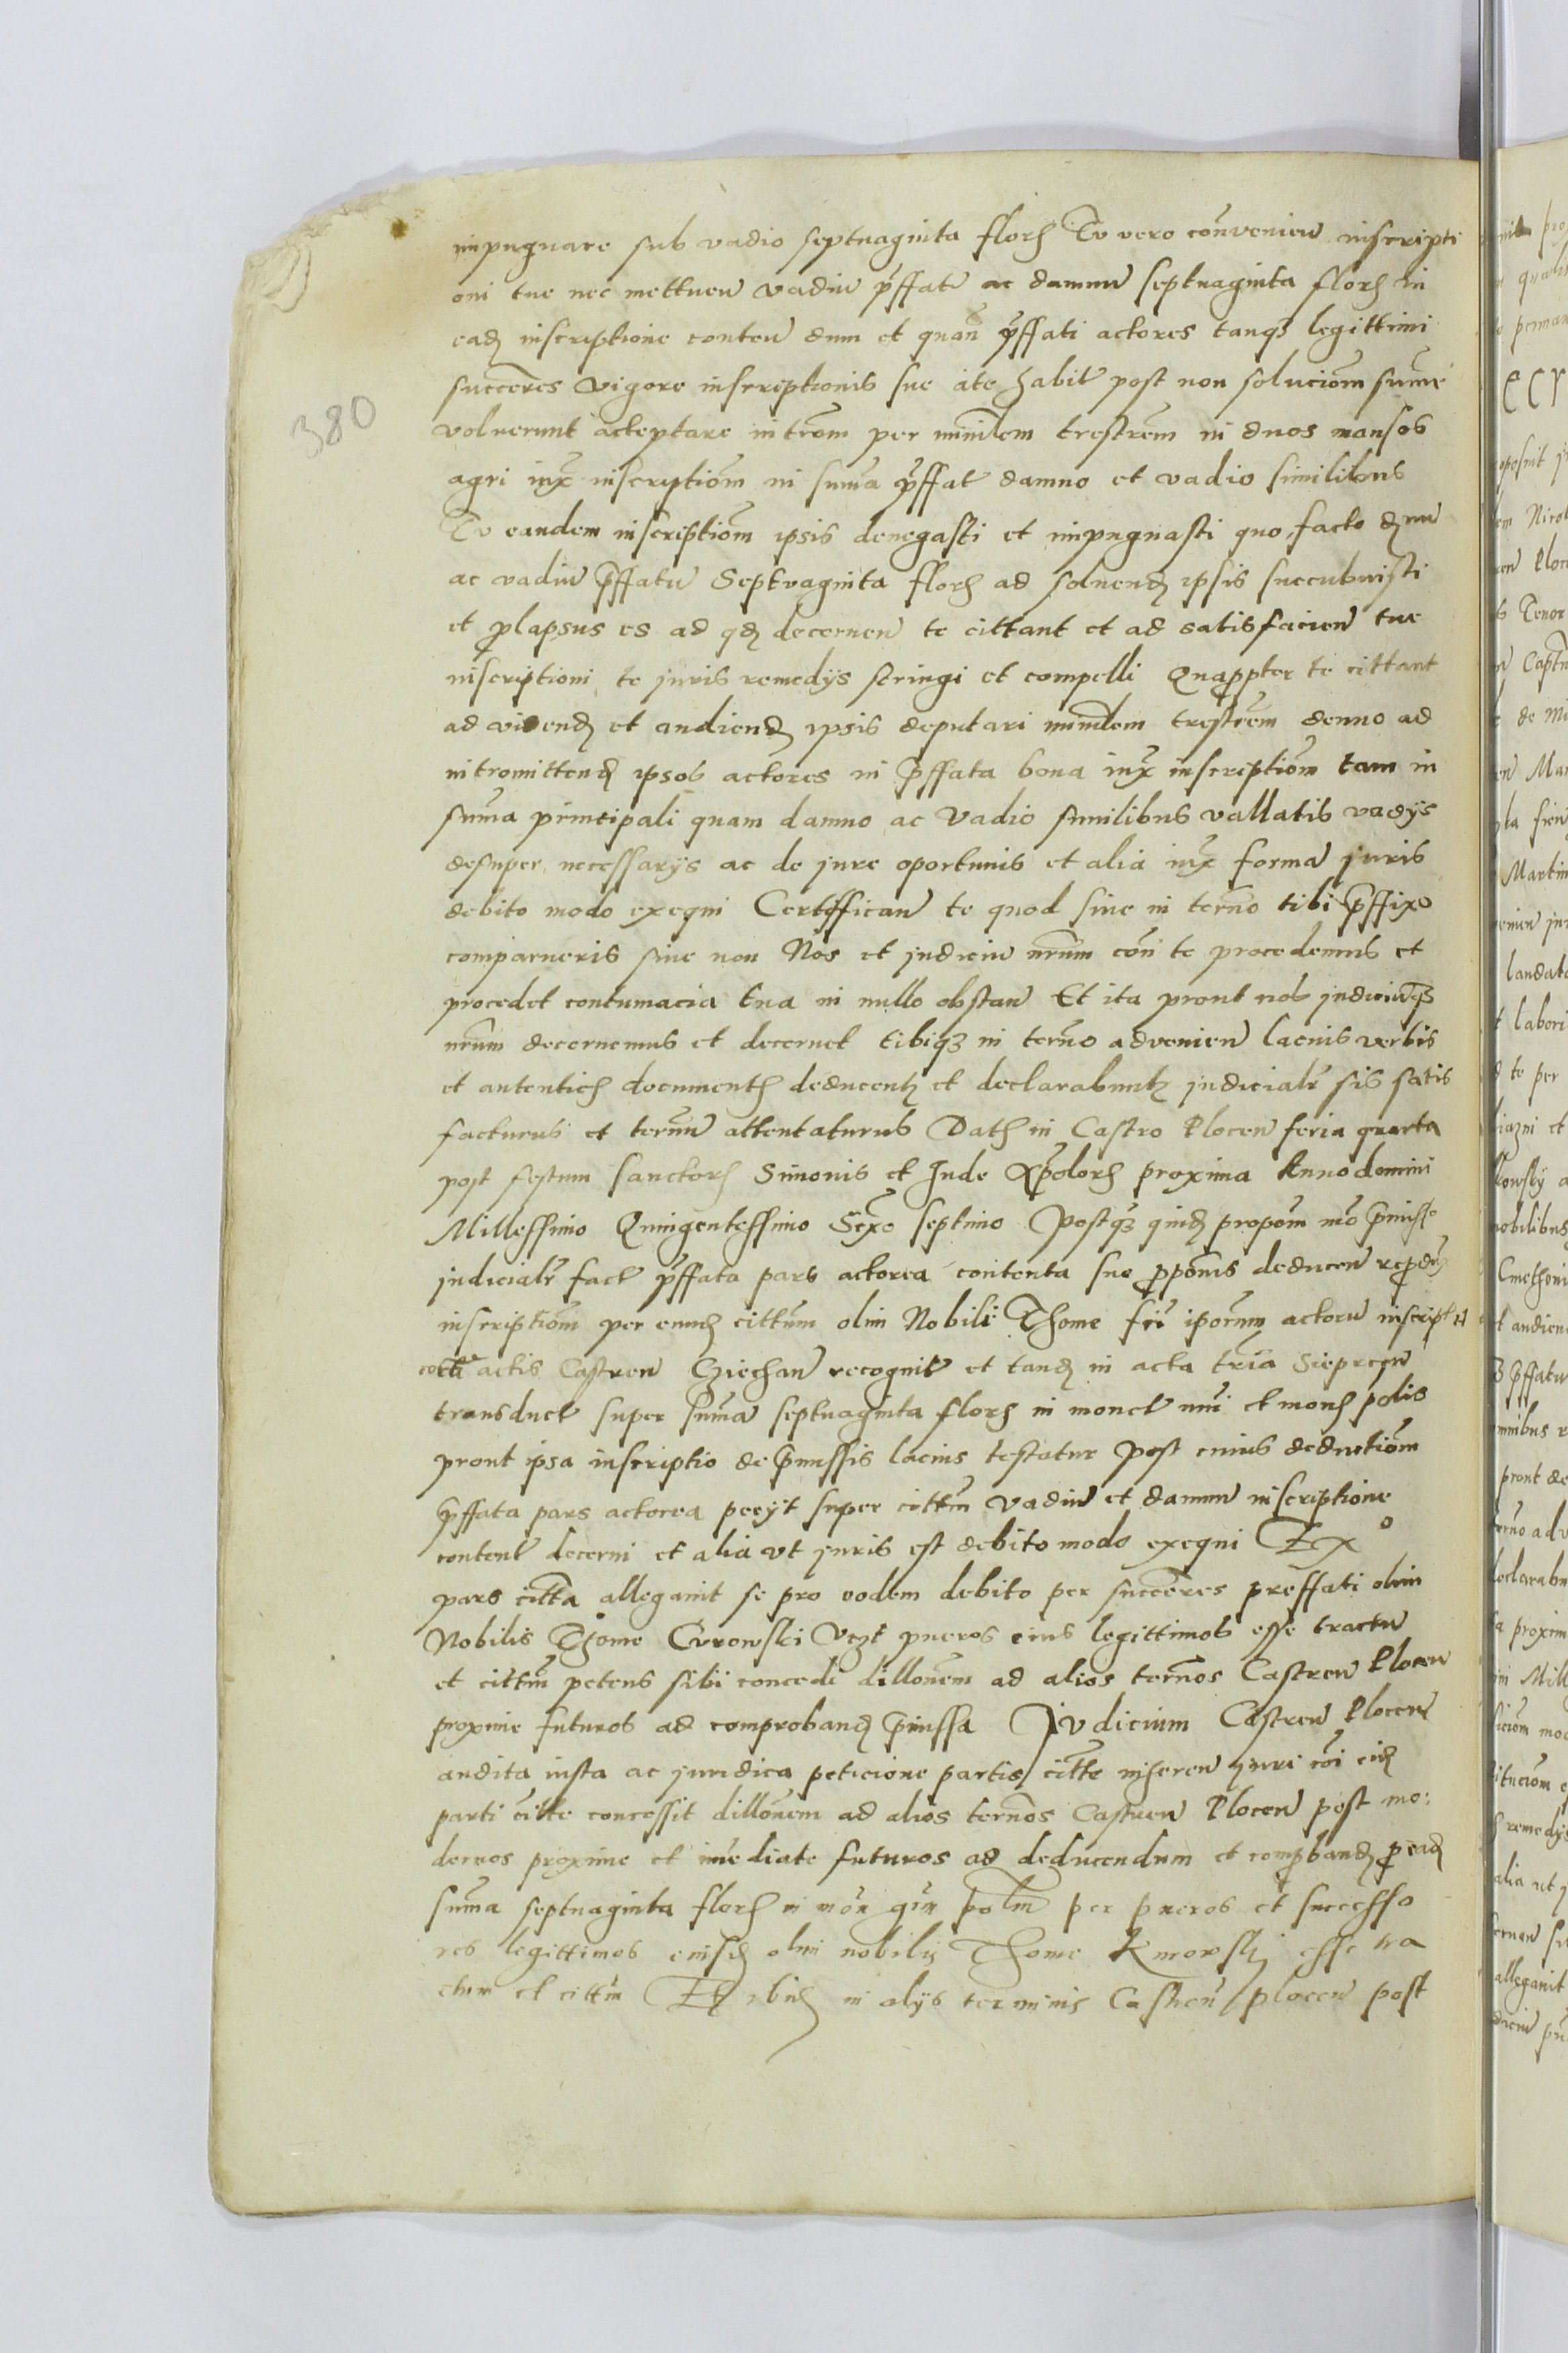 impugnare sub vadio septuaginta florȝ Tu vero convenien inscripti
oni tue nec mettuen vadiu pffatu ac damnu septuaginta florȝ in
eadȝ inscriptione conten dum et quan pffati actores tanqȝ legittimi
succeres vigore inscreptionis sue ate habit post non soluciom sume
voluerunt acteptare introm per minlem trestrem in duos mansos
agri iux inscriptiom in suma pffat damno et vadio similibus
Tu eandem inscriptiom ipsis denegasti et impugnasti quo facto
ac vadiu pffatu Septuaginta florȝ ad soluendȝ ipsis succubuisti
et plapsus es ad qdȝ decernen te cittant et ad satisfacien tue
inscriptioni te juris remedijs stringi et compelli Quappter te cittant
ad videndȝ et audiendȝ ipsis deputari minlem trestrem denuo ad
intromittendȝ ipsos actores in pffata bona iux inscreptiom tam in
suma principali quam damno ac Vadio similibus vallatis vadijs
desuper necessarijs ac de jure oportunis et alia iux forma juris
debito modo exequi Certiffican te quod siue in termo tibi pffixo
comparueris siue non Nos et judiciu nrum con te procedemus et
procedet contumacia tua in nullo obstan Et ita prout nos judiciuqȝ
nrum decernemus et decernet tibiqȝ in termo advenien lacius verbis
et autenticȝ documentȝ deducentȝ et declarabuntȝ judicialr sis satis
facturus et termu attentaturus Datȝ in Castro Plocen feria quarta
post festum sanctorȝ Simonis et Jude Aplorȝ proxima Anno domini
Millessimo Quingentessimo Sexo septimo Postqȝ quidȝ propom mo pmisso
judicialr fact pffata pars actorea contenta sue ppoms deducen
inscriptiom per eundȝ cittum olim Nobili Thome fri iporum actoru inscript
actis Castren Cziechan recognit et tandȝ in acta tria Sieprcen
transduct super suma septuaginta florȝ in monet nui et monȝ polis
prout ipsa inscriptio de pmissis lacius testatur Post cuius deductiom
pffata pars actorea pecijt super cittm Vadiu et damnu inscriptione
content decerni et alia ut juris est debito modo exequi Ex°
pars citta allegauit se pro eodem debito per succeres preffati olim
Nobilis Thome Curowski Uczt pueros eius legittimos esse tractu
et cittm petens sibi concedi dillonem ad alios termos Castren Plocen
proxime futuros ad comprobandȝ pmissa Judicium Castren Plocen
audita iusta ac juridica peticione partis citte inheren juri coi eidȝ
parti citte concessit dillonem ad alios termos Castren Plocen post mo:
dernos proxime et imediate futuros ad deducendum et compbandȝ p eadȝ
suma septuaginta florȝ in mon qun polm per pueros et successo
res legittimos eiusdȝ olim nobilis Thome Kurowski esse tra
ctum et cittm Et ibidȝ in alijs terminis Castren plocen post
380